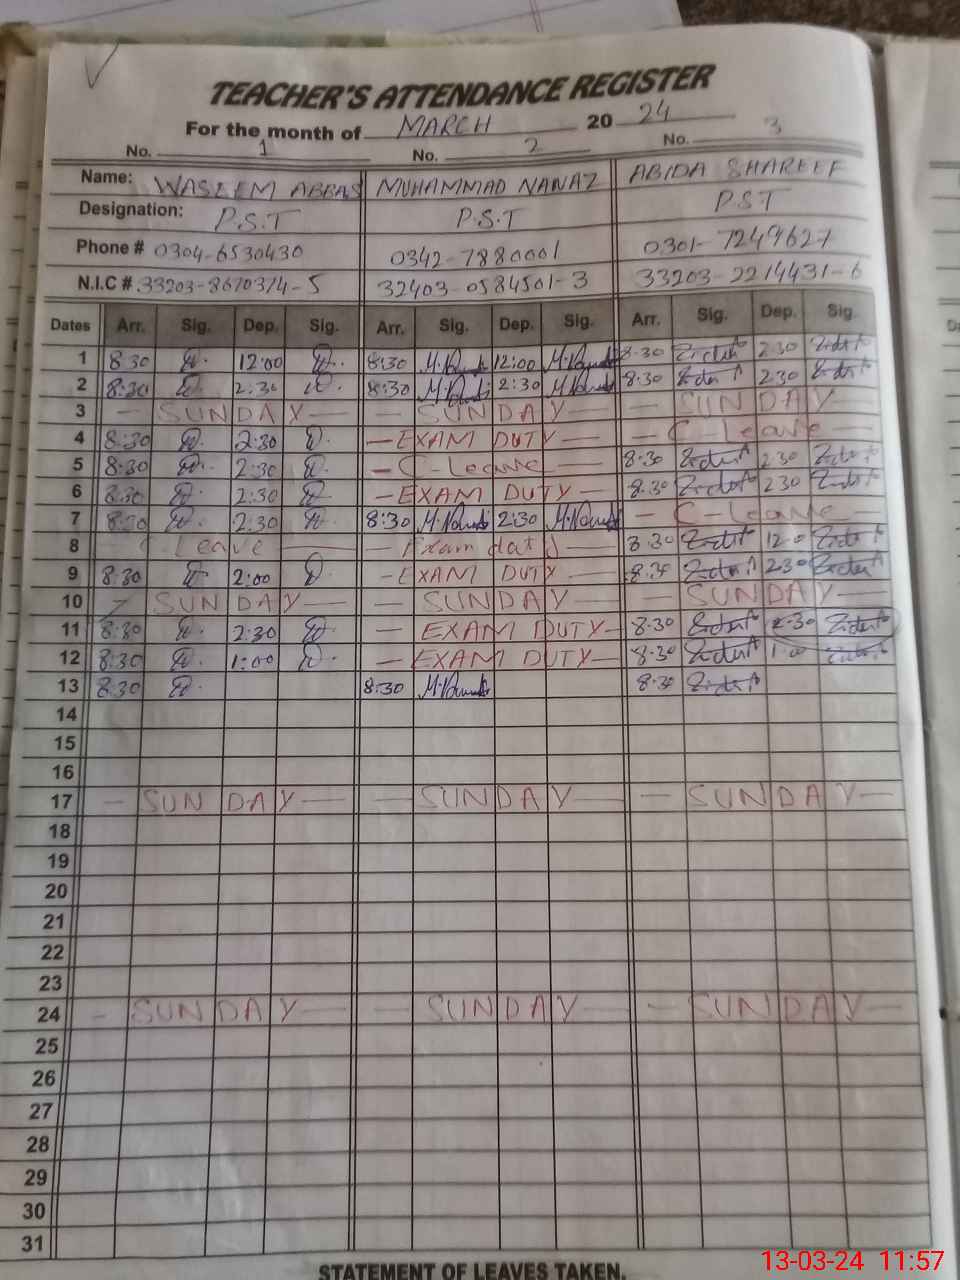 TEACHER'S ATTENDANCE REGISTER
For the month of MARCH 20 24
No. 1 No. 2 No. 3
Name: WASEEM ABBAS MUHAMMAD NANAZ ABIDA SHAREEF
Designation: P.S.T P.S.T P.S.T
Phone # 0304-6530430 0342-7880001 0301-7249627
N.I.C # 33203-8670374-5 32403-0584501-3 33203-2214431-6
Dates Arr. Sig. Dep. Sig. Arr. Sig. Dep. Sig. Arr. Sig. Dep. Sig.
1 8:30 12:00 8:30 12:00 8:30 2:30
2 8:30 2:30 8:30 2:30 8:30 2:30
3 - SUNDAY - - SUNDAY - - SUNDAY -
4 8:30 2:30 - EXAM DUTY - - C-Leave -
5 8:30 2:30 - C-Leave - 8:30 2:30
6 8:30 2:30 - EXAM DUTY - 8:30 2:30
7 8:30 2:30 8:30 2:30 - C-Leave -
8 Leave - Exam 8:30 12:0
9 8:30 2:00 - EXAM DUTY - 8:30 2:30
10 - SUNDAY - - SUNDAY - - SUNDAY -
11 8:30 2:30 - EXAM DUTY - 8:30 2:30
12 8:30 1:00 - EXAM DUTY - 8:30 1:00
13 8:30 8:30 8:30
14
15
16
17 - SUNDAY - - SUNDAY - - SUNDAY -
18
19
20
21
22
23
24 - SUNDAY - - SUNDAY - - SUNDAY -
25
26
27
28
29
30
31
STATEMENT OF LEAVES TAKEN.
13-03-24 11:57